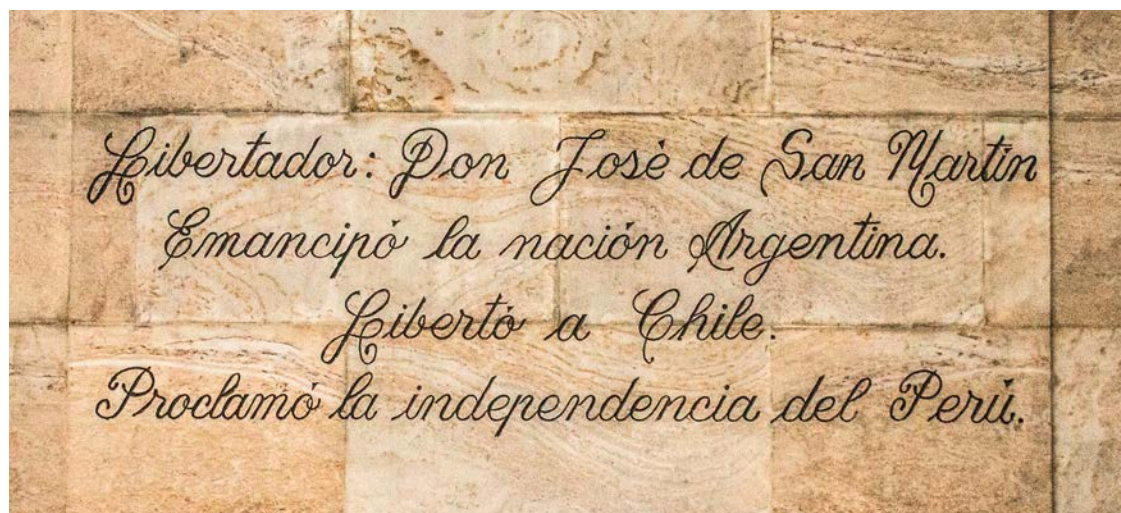 Libertador: Don José de San Martín
Emancipó la nación Argentina.
Libertó a Chile.
Proclamó la independencia del Perú.